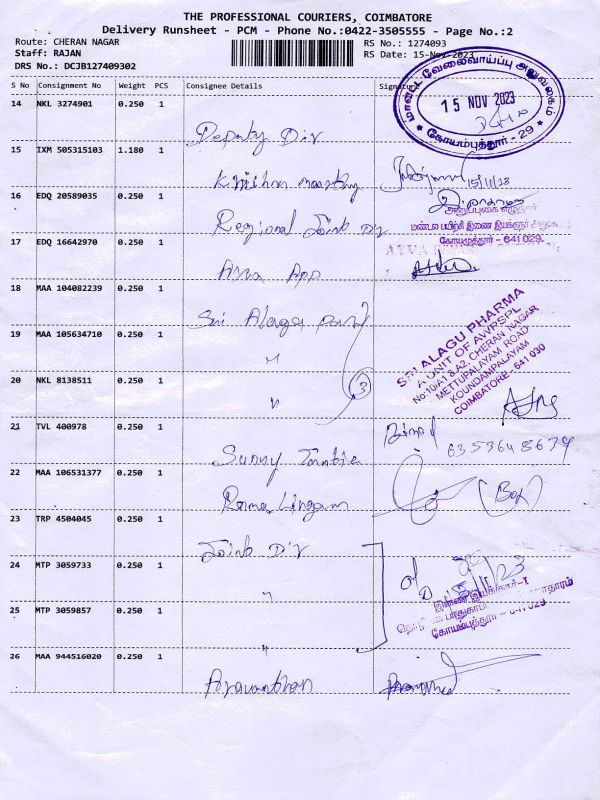 THE PROFESSIONAL COURIERS, COIMBATORE
Delivery Runsheet - PCM - Phone No.:0422-3505555 - Page No.:2
Route: CHERAN NAGAR
RS No.: 1274093
Staff: RAJAN
RS Date: 15-Nov-2023
DRS No.: DCJB127409302
S No Consignment No Weight PCS Consignee Details Signature
மாவட்ட வேலைவாய்ப்பு அலுவலகம்
15 NOV 2023
கோயம்புத்தூர் - 29
14 NKL 3274901 0.250 1
Deputy Dir
15 IXM 505315103 1.180 1
15/11/23
16 EDQ 20589035 0.250 1
Regional Joint Dir
கோயமுத்தூர் - 641 029.
17 EDQ 16642970 0.250 1
App
18 MAA 104082239 0.250 1
Sri Alagu
19 MAA 105634710 0.250 1
"
SRI ALAGU PHARMA
A UNIT OF AWPSPL
No:10/A1 & A2, CHERAN NAGAR
METTUPALAYAM ROAD
KOUNDAMPALAYAM
COIMBATORE - 641 030
20 NKL 8138511 0.250 1
"
3
21 TVL 400978 0.250 1
Sunny
22 MAA 106531377 0.250 1
Rama Lingam
23 TRP 4504045 0.250 1
Joint Dir
24 MTP 3059733 0.250 1
"
25 MTP 3059857 0.250 1
"
கோயம்புத்தூர் - 641 029
26 MAA 944516020 0.250 1